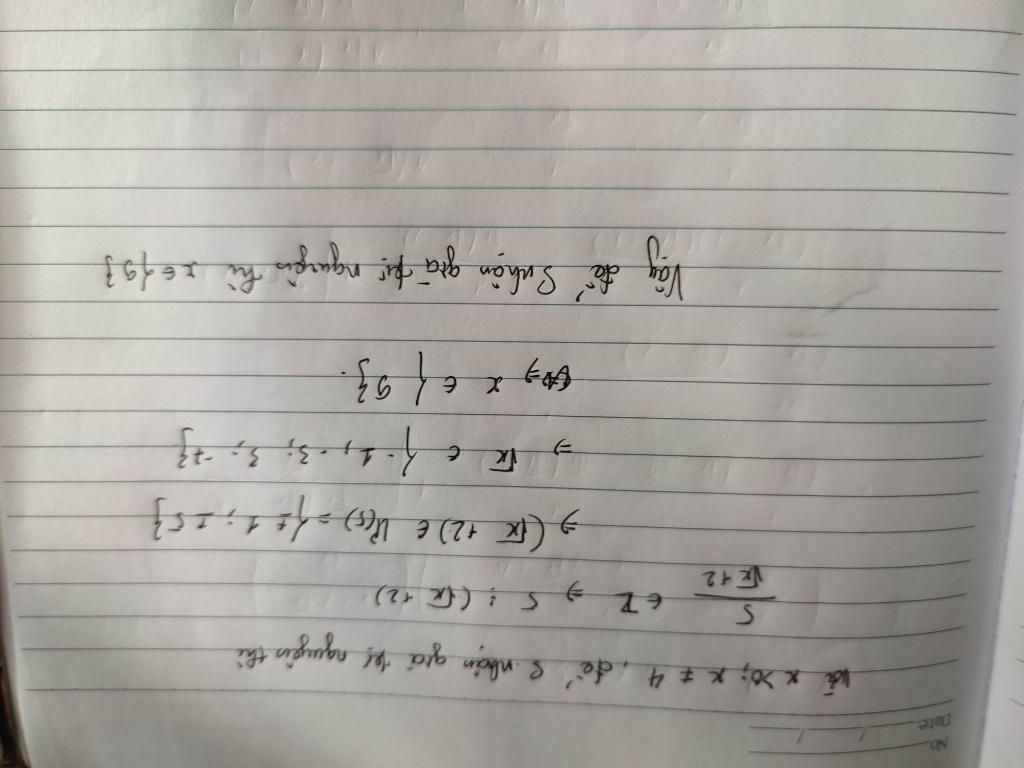 No.
Date / /
Với x > 0; x ≠ 4, để S nhận giá trị nguyên thì
5/(√x +2) ∈ Z ⇒ 5 ⋮ (√x +2)
⇒ (√x +2) ∈ Ư(5) = {±1; ±5}
⇒ √x ∈ {-1; -3; 3; -7}
⇒ x ∈ {9}.
Vậy để S nhận giá trị nguyên thì x ∈ {9}